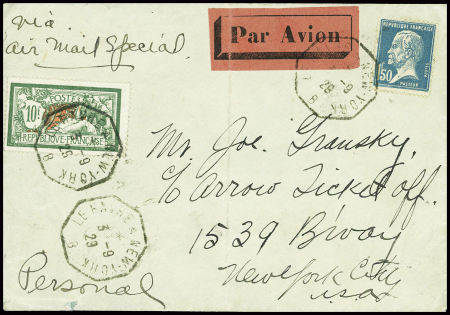 via
air mail Special
Par Avion
REPUBLIQUE FRANÇAISE
1F50
PASTEUR
NEW-YORK
-9
29
8
POSTES
10F
REPUBLIQUE FRANÇAISE
NEW-YORK 8
-9
29
LE HAVRE À NEW-YORK 8
3-9
29
Mr. Joe. Gransky.
c/o Arrow Ticket off.
1539 B'way
New York City
U.S.A.
Personal